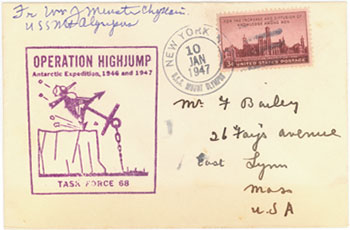 Fr. Wm J Menster Chaplain
USS Mt Olympus
OPERATION HIGHJUMP
Antarctic Expedition, 1946 and 1947
TASK FORCE 68
NEW YORK
10
JAN
1947
U.S.S. MOUNT OLYMPUS
FOR THE INCREASE AND DIFFUSION OF
KNOWLEDGE AMONG MEN
3¢ UNITED STATES POSTAGE
Mr F Bailey
26 Fays avenue
East Lynn
Mass
U.S.A